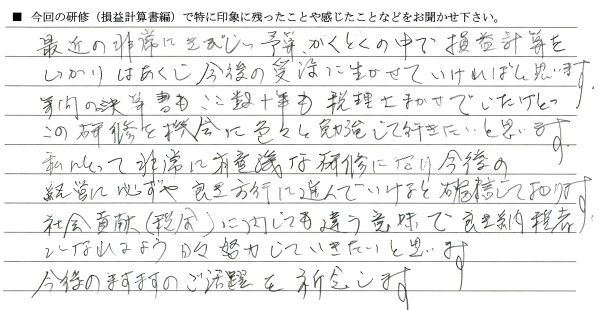 ■ 今回の研修（損益計算書編）で特に印象に残ったことや感じたことなどをお聞かせ下さい。
最近の非常にきびしい予算かくとくの中で損益計算を
しっかりはあくし今後の受注に生かせていければと思います。
年間の決算書もここ数十年も税理士まかせでしたけど
この研修を機会に色々と勉強して行きたいと思います。
私にとって非常に有意義な研修になり今後の
経営に必ずや良き方行に進んでいけると確信しております。
社会貢献（税金）に対しても違う意味で良き納税者
になれるよう日々努力していきたいと思います
今後のますますのご活躍を祈念します